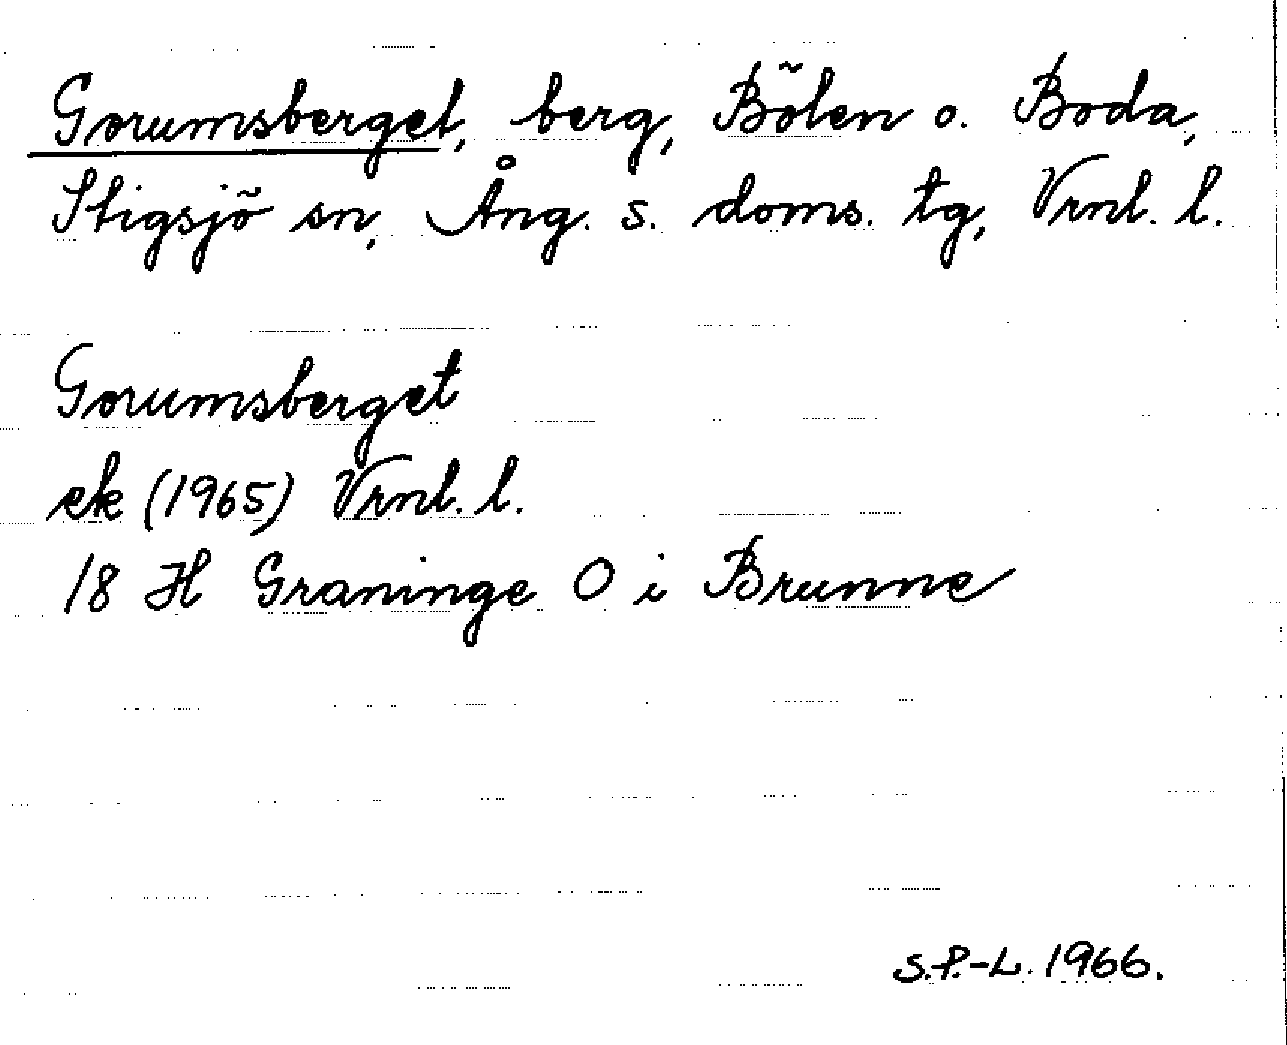 Gorumsberget, berg, Bölen o. Boda,
Stigsjö sn, Ång. s. doms. tg, Vrnl. l.
Gorumsberget
ek (1965) Vrnl. l.
18 H Graninge O i Brunne
S.P.-L. 1966.